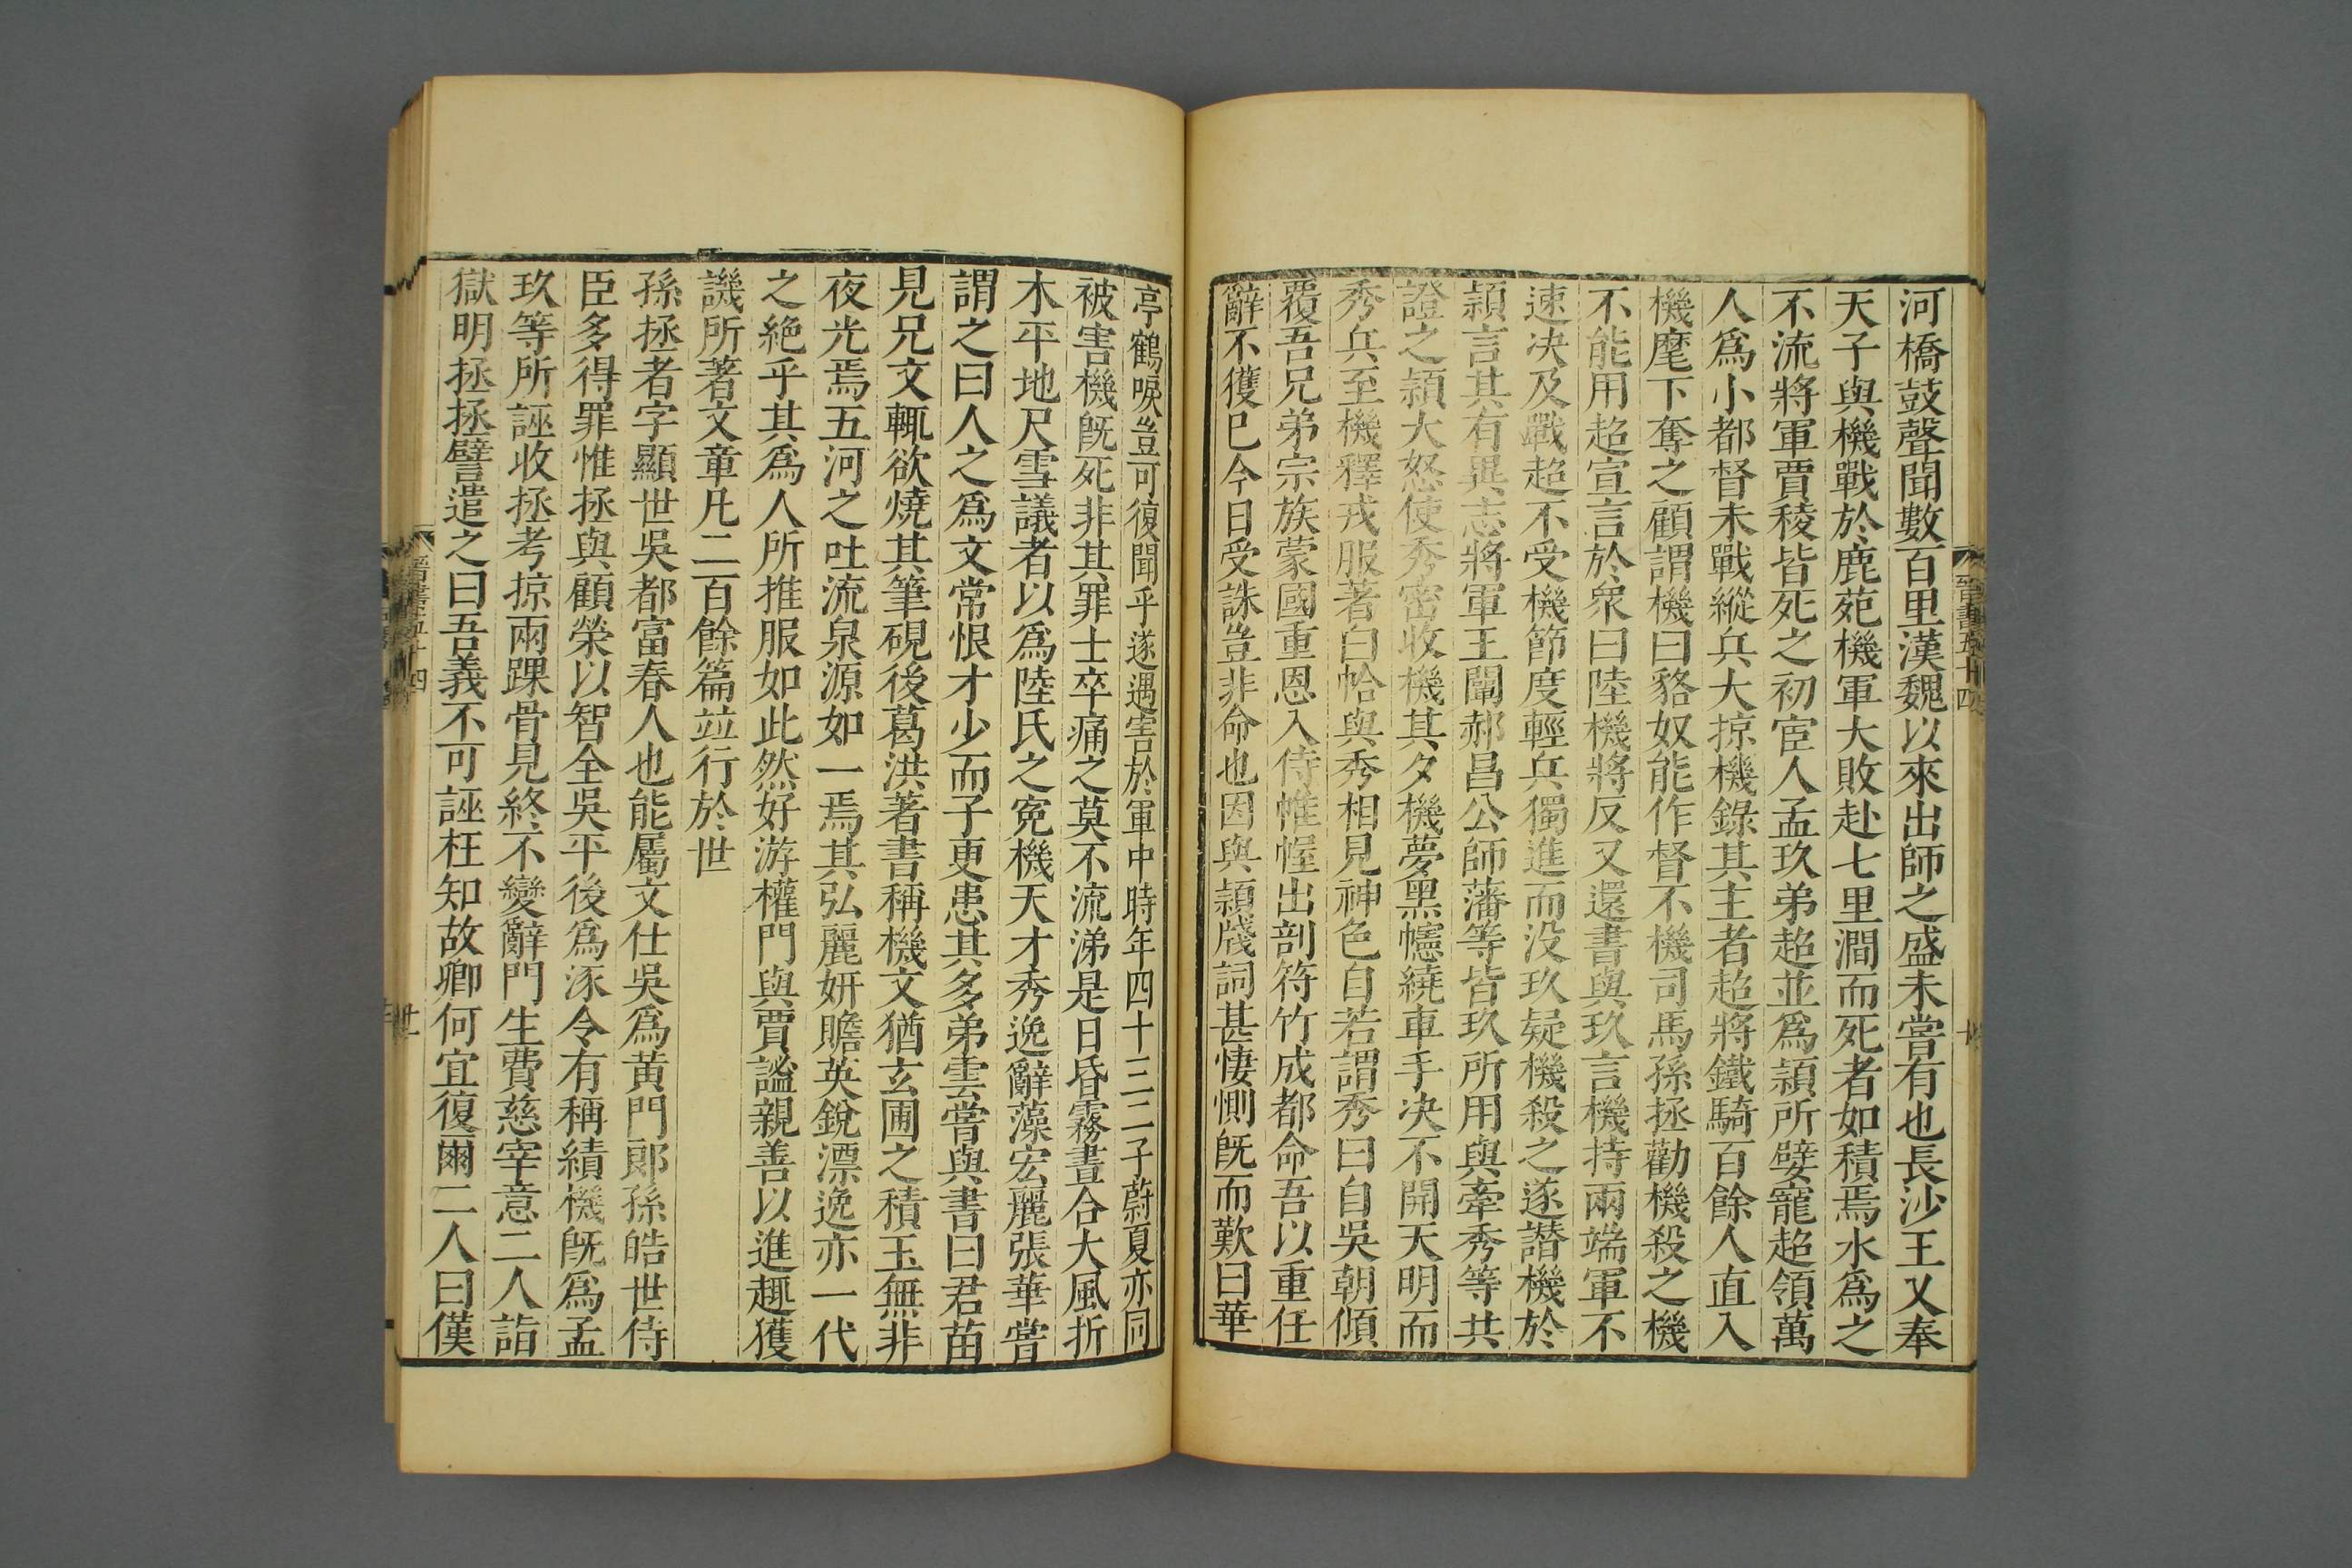 河橋鼓聲聞數百里漢魏以來出師之盛未嘗有也長沙王乂奉
天子與機戰於鹿苑機軍大敗赴七里澗而死者如積焉水爲之
不流將軍賈稜皆死之初宦人孟玖弟超並爲頴所嬖寵超領萬
人爲小都督未戰縱兵大掠機錄其主者超將鐵騎百餘人直入
機麾下奪之顧謂機曰貉奴能作督不機司馬孫拯勸機殺之機
不能用超宣言於衆曰陸機將反又還書與玖言機持兩端軍不
速决及戰超不受機節度輕兵獨進而没玖疑機殺之遂譖機於
頴言其有異志將軍王闡郝昌公師藩等皆玖所用與牽秀等共
證之頴大怒使秀密收機其夕機夢黑幰繞車手决不開天明而
秀兵至機釋戎服著白帢與秀相見神色自若謂秀曰自吳朝傾
覆吾兄弟宗族蒙國重恩入侍帷幄出剖符竹成都命吾以重任
辭不獲已今日受誅豈非命也因與頴牋詞甚悽惻旣而歎曰華
亭鶴唳豈可復聞乎遂遇害於軍中時年四十三二子蔚夏亦同
被害機旣死非其罪士卒痛之莫不流涕是日昏霧晝合大風折
木平地尺雪議者以爲陸氏之寃機天才秀逸辭藻宏麗張華嘗
謂之曰人之爲文常恨才少而子更患其多弟雲嘗與書曰君苗
見兄文輒欲燒其筆硯後葛洪著書稱機文猶玄圃之積玉無非
夜光焉五河之吐流泉源如一焉其弘麗姸贍英銳漂逸亦一代
之絶乎其爲人所推服如此然好游權門與賈謐親善以進趣獲
譏所著文章凡二百餘篇竝行於世
孫拯者字顯世吳都富春人也能屬文仕吳爲黄門郎孫皓世侍
臣多得罪惟拯與顧榮以智全吳平後爲涿令有稱績機旣爲孟
玖等所誣收拯考掠兩踝骨見終不變辭門生費慈宰意二人詣
獄明拯拯譬遣之曰吾義不可誣枉知故卿何宜復爾二人曰僕
晉書五十四